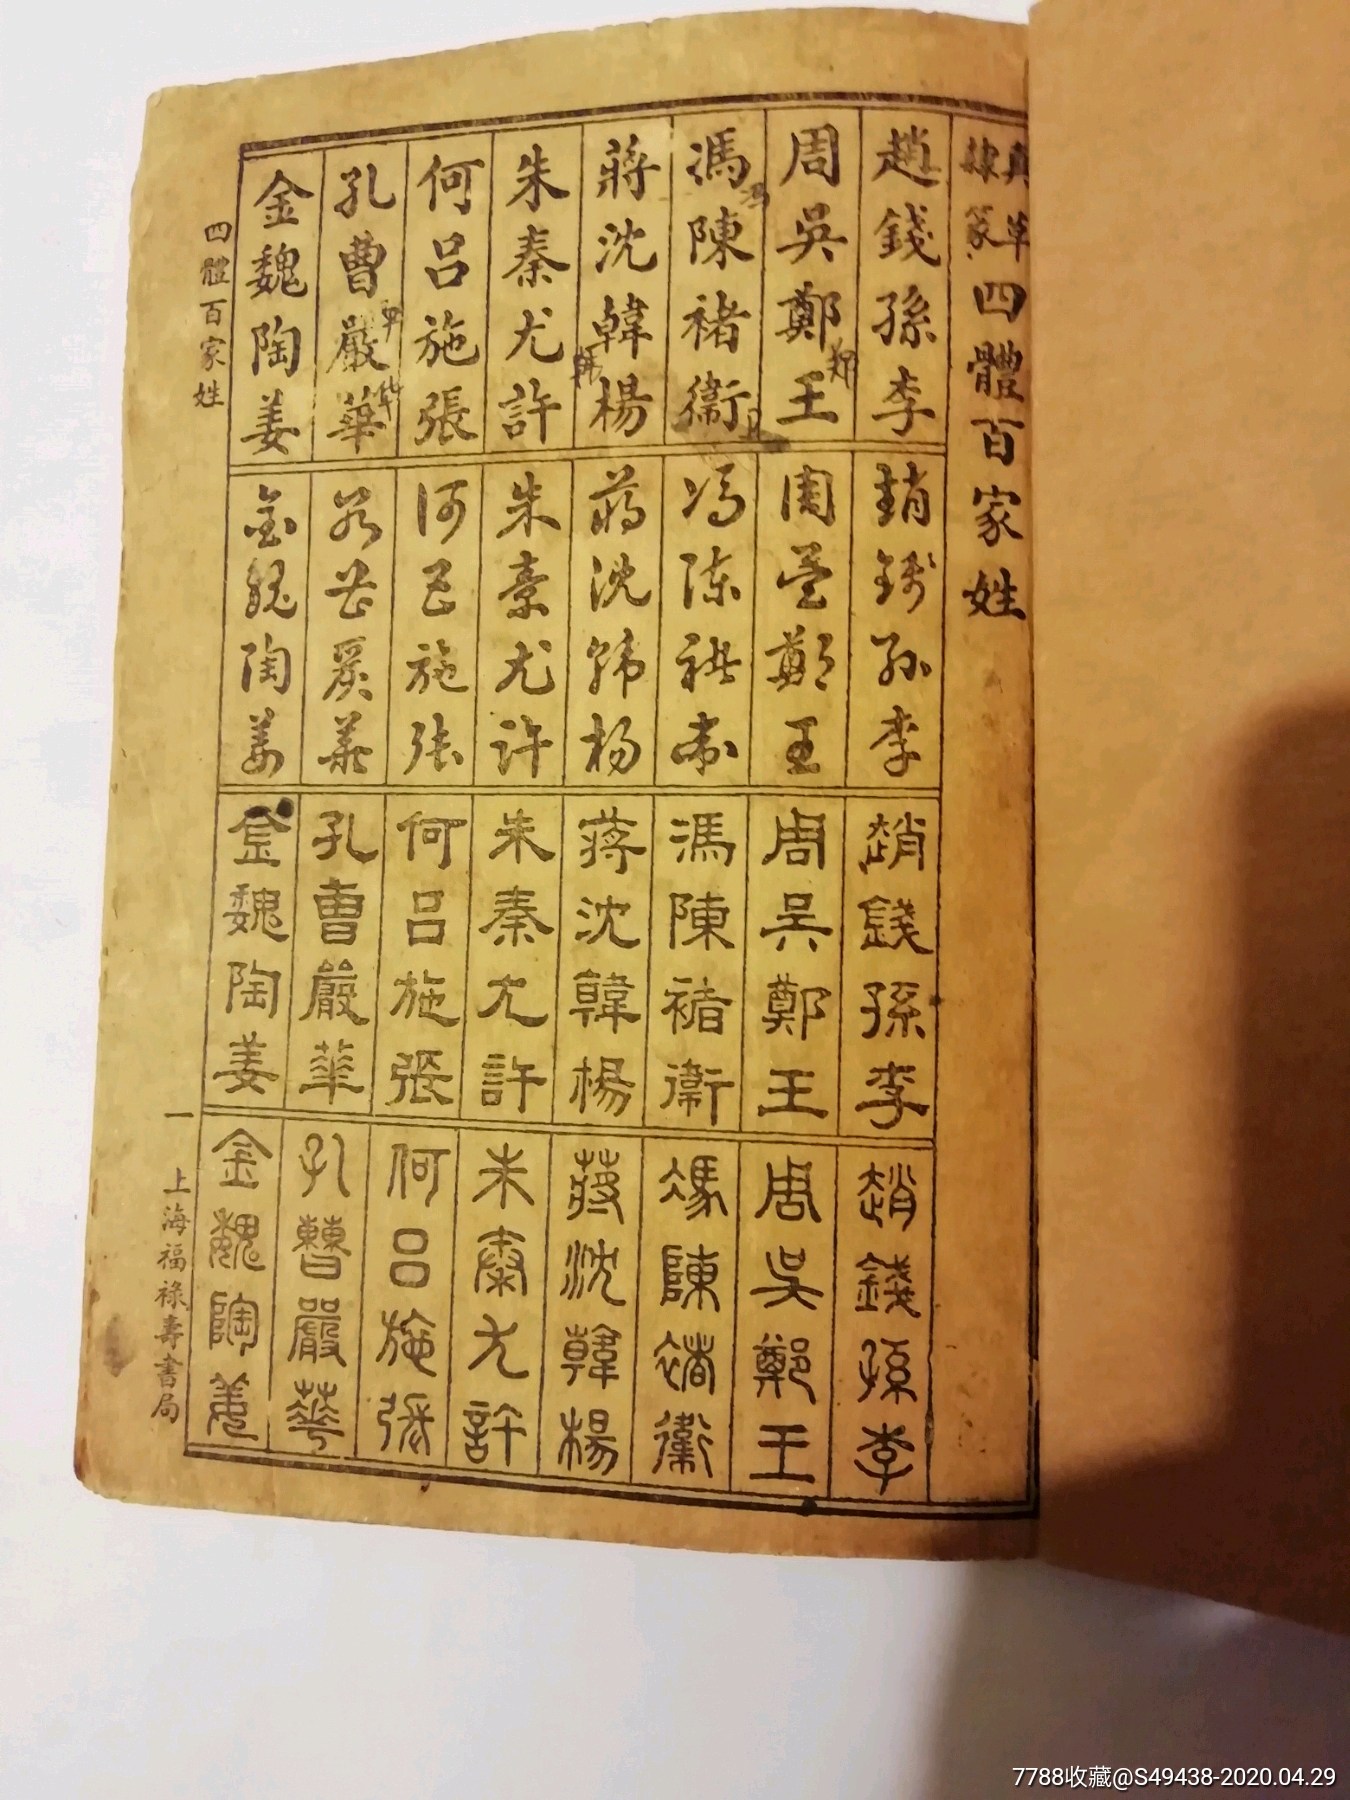 真草隸篆四體百家姓
趙錢孫李
周吳鄭王
馮陳褚衞
蔣沈韓楊
朱秦尤許
何呂施張
孔曹嚴華
金魏陶姜
趙錢孫李
周吳鄭王
馮陳褚衞
蔣沈韓楊
朱秦尤許
何呂施張
孔曹嚴華
金魏陶姜
趙錢孫李
周吳鄭王
馮陳褚衞
蔣沈韓楊
朱秦尤許
何呂施張
孔曹嚴華
金魏陶姜
趙錢孫李
周吳鄭王
馮陳褚衞
蔣沈韓楊
朱秦尤許
何呂施張
孔曹嚴華
金魏陶姜
四體百家姓
一
上海福祿壽書局
7788收藏@S49438-2020.04.29